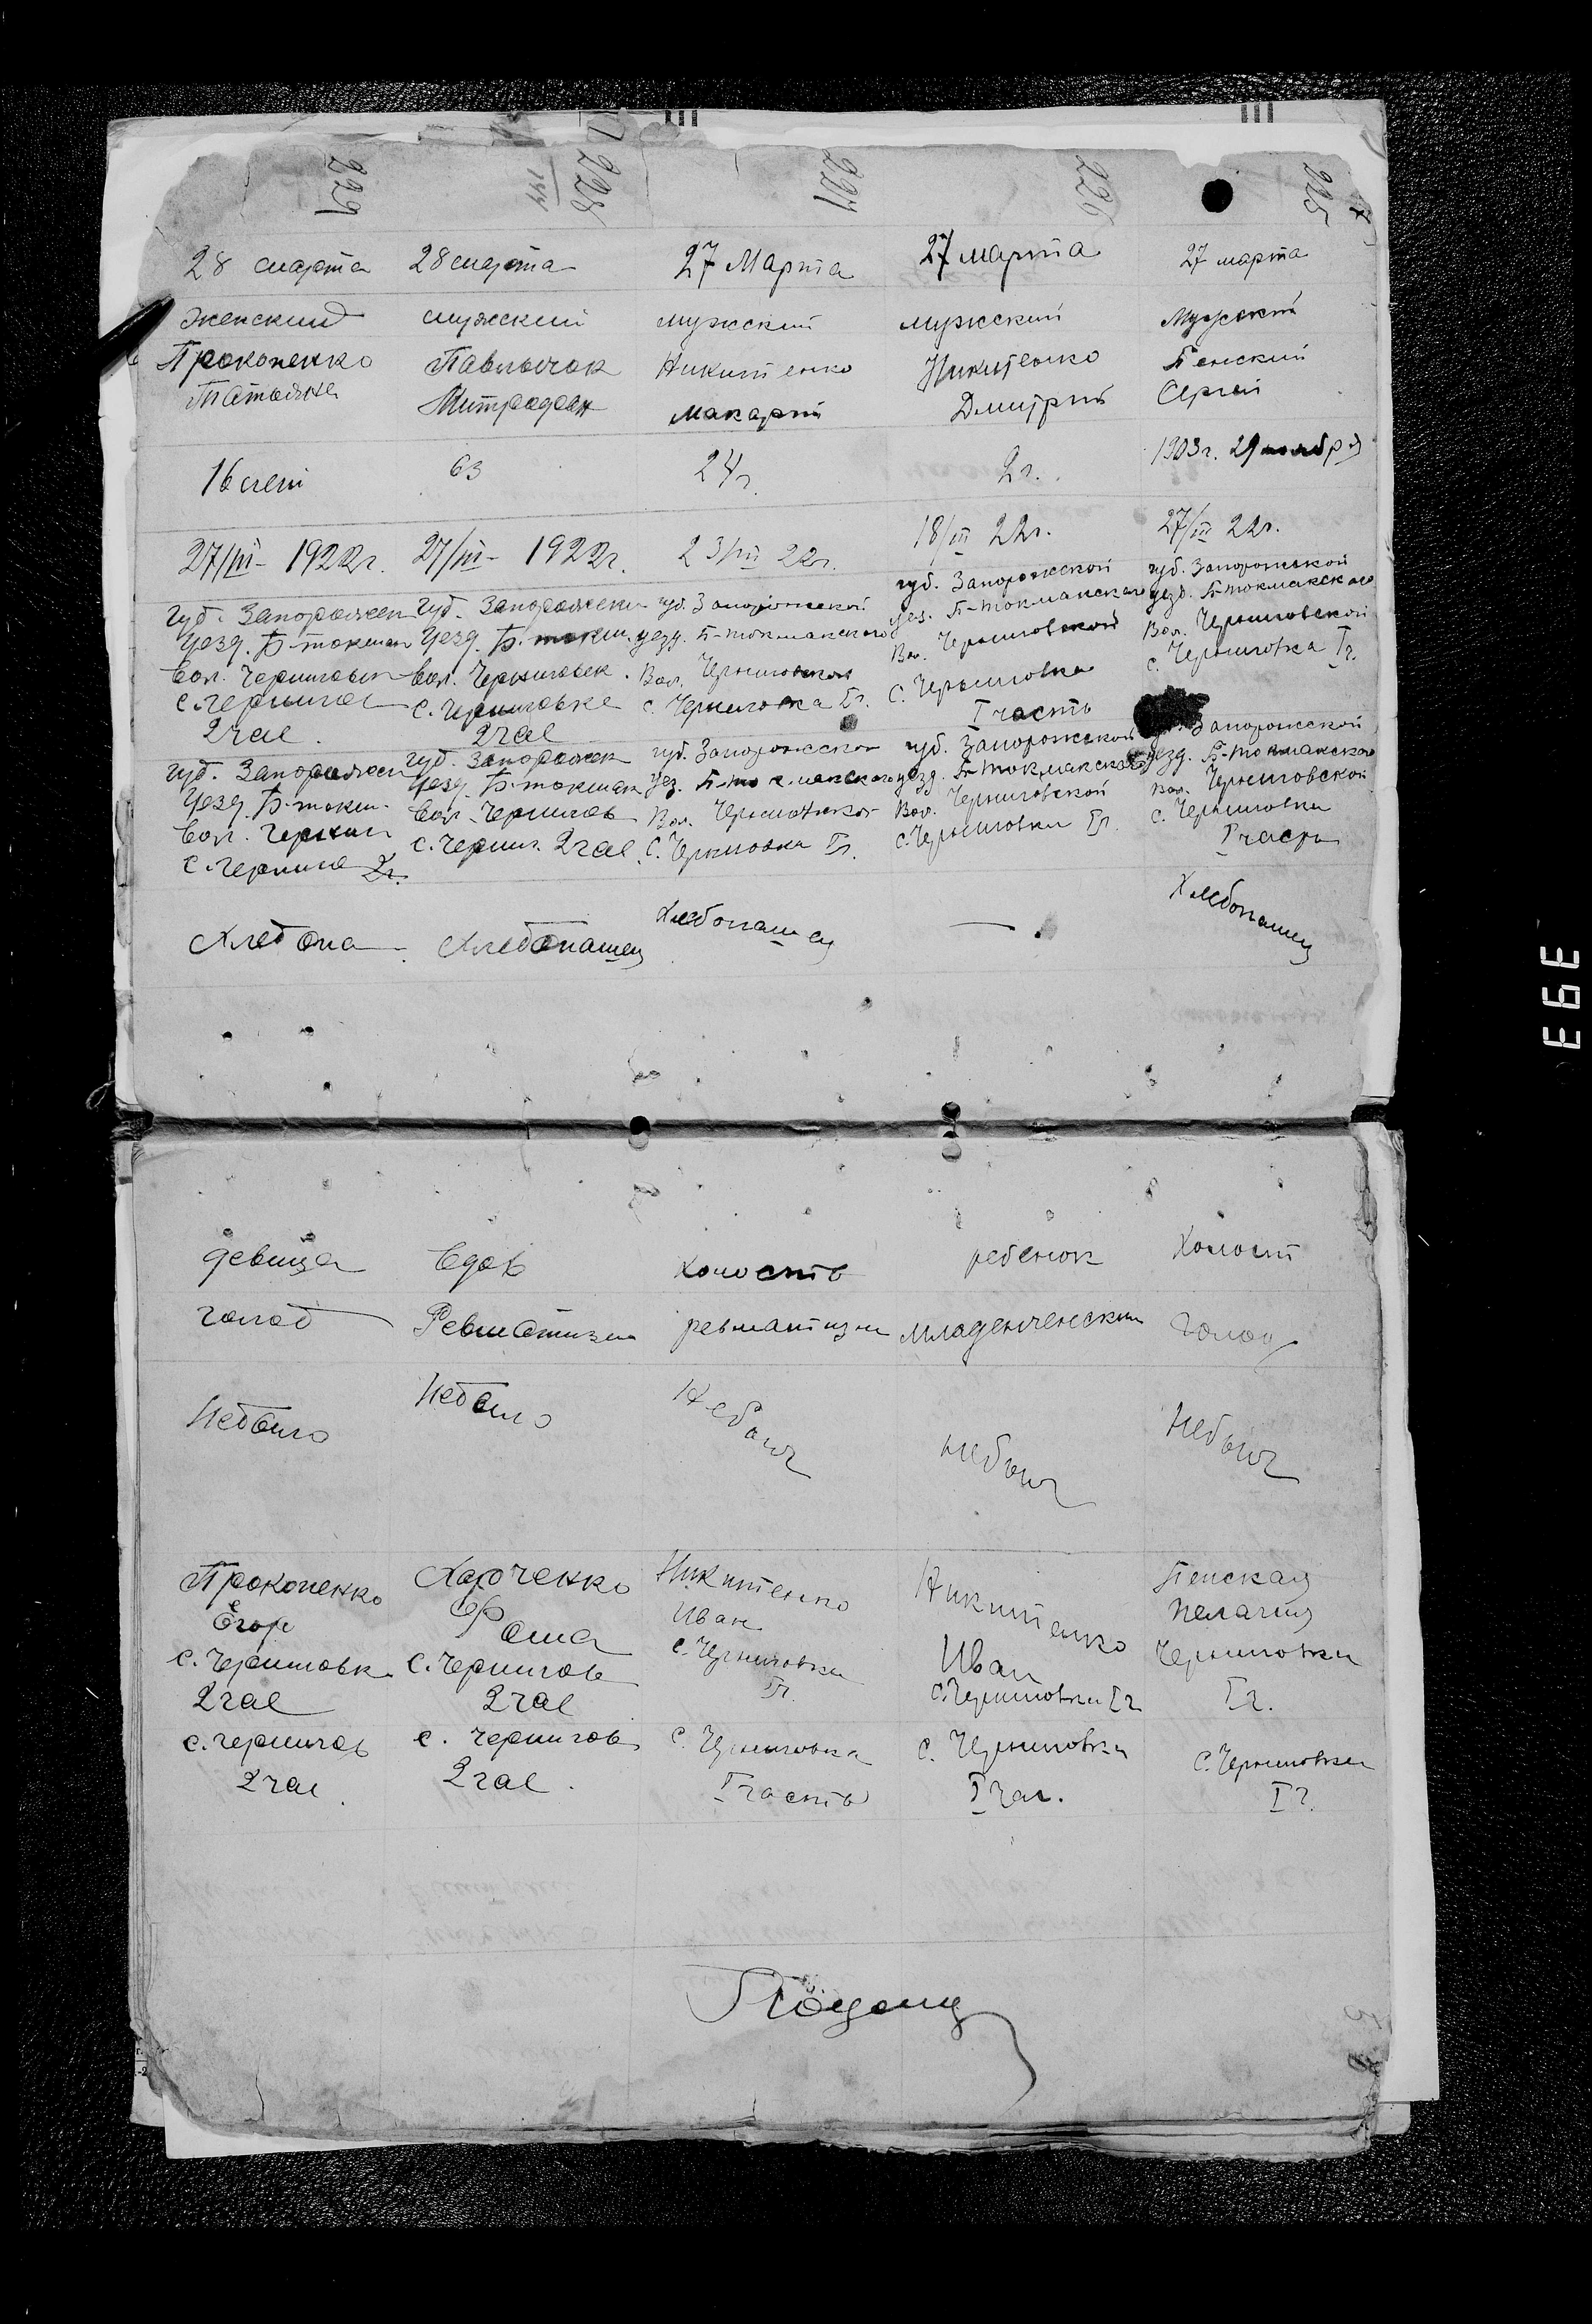 229
28 марта
женский
Прокопенко
Татьяна
16 лет
27/III - 1922 г.
губ. Запорожск
уезд. Б-токмак
вол. Чернигов
с. Чернигов
2 час
губ. Запорожск
уезд. Б-токм.
вол. Черниг
с. Черниго 2 ч.
Хлебопа
девица
голод
Небыло
Прокопенко
Егор
с. Черниговк
2 час
с. Чернигов
2 час
228
28 марта
мужский
Павлычок
Митрофан
63
27/III - 1922 г.
губ. Запорожск
уезд. Б-токм.
вол. Черниговск.
с. Черниговке
2 час
губ. Запорожск
уезд. Б-токмак
вол. Чернигов
с. Черниг. 2 час
Хлебопашец
Вдов
Ревматизм
Небыло
Харченко
Фома
с. Чернигов
2 час
с. Чернигов
2 час.
227
27 Марта
мужский
Никитенко
Макарий
24 г.
23/III 22 г.
губ. Запорожской
уезд. Б-токмакского
Вол. Черниговской
с. Черниговка I ч.
губ. Запорожской
уез. Б-токмакского
Вол. Черниговской
с. Черниговка I ч.
Хлебопашец
холость
ревматизм
Небыло
Никитенко
Иван
с. Черниговки
I ч.
с. Черниговка
I часть
226
27 марта
мужский
Никитенко
Дмитрий
2 г.
18/III 22 г.
губ. Запорожской
уез. Б-токмакского
Вол. Черниговской
с. Черниговка
I часть
губ. Запорожской
уезд. Б-токмакского
Вол. Черниговской
с. Черниговки I ч.
—
ребенок
младенческий
небыло
Никитенко
Иван
с. Черниговки I ч
с. Черниговки
I час.
225
27 марта
Мужский
Пенский
Сергей
1903 г. 29 ноября
27/III 22 г.
губ. Запорожской
уезд. Б-токмакского
Вол. Черниговской
с. Черниговка I ч.
Запорожской
уезд. Б-токмакского
Вол. Черниговской
с. Черниговки
I часть
Хлебопашец
Холост
Голод
Небыло
Пенская
Пелагия
Черниговки
I ч.
с. Черниговки
I ч.
393